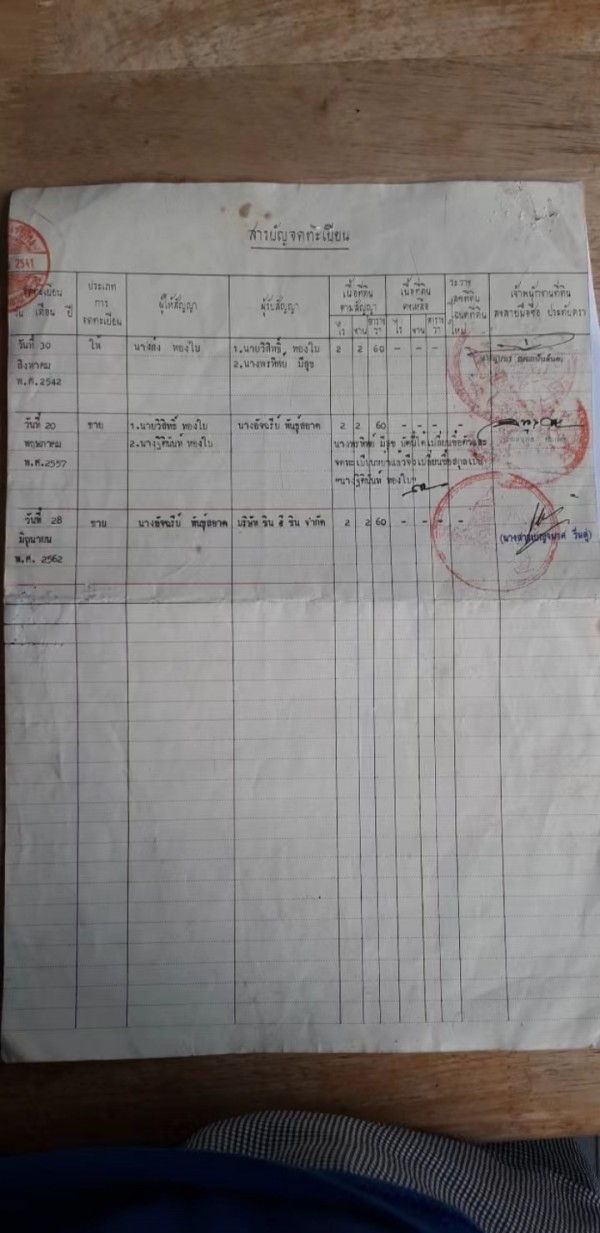 สารบัญจดทะเบียน
2541
จดทะเบียน
วัน เดือน ปี
ประเภท
การ
จดทะเบียน
ผู้ให้สัญญา
ผู้รับสัญญา
เนื้อที่ดิน
ตามสัญญา
ไร่ งาน ตารางวา
เนื้อที่ดิน
คงเหลือ
ไร่ งาน ตารางวา
ระวาง
เลขที่ดิน
โฉนดที่ดิน
ใหม่
เจ้าพนักงานที่ดิน
ลงลายมือชื่อ ประทับตรา
วันที่ 30 ให้ นางส่ง ทองใบ 1.นายวิสิทธิ์ ทองใบ 2 2 60 - - -
สิงหาคม 2.นางพรทิพย์ มีสุข
พ.ศ.2542
วันที่ 20 ขาย 1.นายวิสิทธิ์ ทองใบ นางอัจฉรีย์ พันธุ์สอาด 2 2 60 - - - -
พฤษภาคม 2.นางฐิตินันท์ ทองใบ นางพรทิพย์ มีสุข บัดนี้ได้เปลี่ยนชื่อตัวและ
พ.ศ.2557 จดทะเบียนหย่าแล้วจึงเปลี่ยนชื่อสกุลเป็น
"นางฐิตินันท์ ทองใบ"
วันที่ 28 ขาย นางอัจฉรีย์ พันธุ์สอาด บริษัท ชิน อี ชิน จำกัด 2 2 60 - - - -
มิถุนายน
พ.ศ. 2562